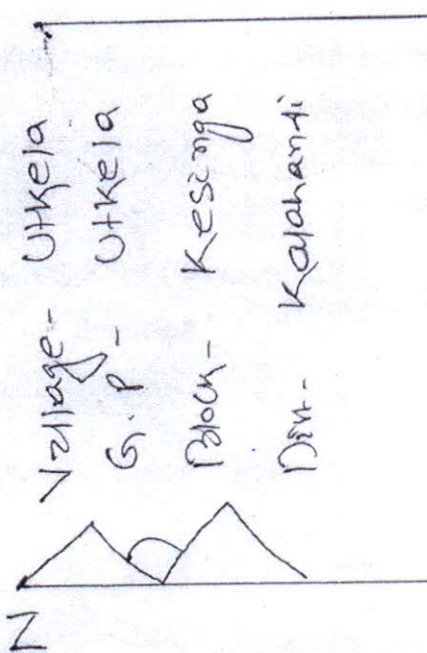 Village - Utkela
G.P - Utkela
Block - Kesinga
Dist - Kalahandi
N